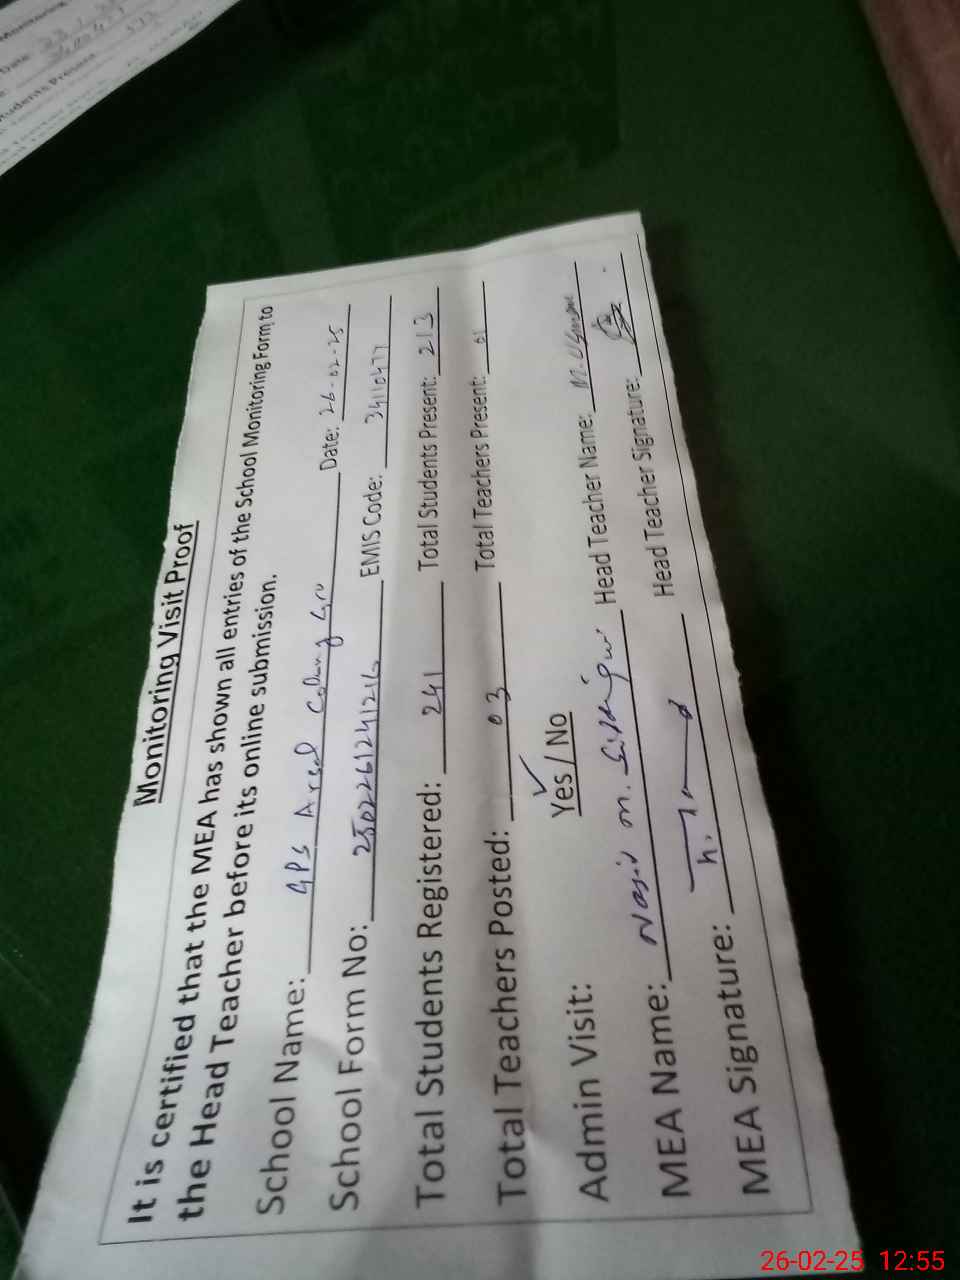 Monitoring Visit Proof
It is certified that the MEA has shown all entries of the School Monitoring Form to
the Head Teacher before its online submission.
School Name: GPS Arsal Colony Date: 26-02-25
School Form No: 250226124126 EMIS Code: 34110477
Total Students Registered: 241 Total Students Present: 213
Total Teachers Posted: 03 Total Teachers Present: 01
Admin Visit: Yes / No
MEA Name: Nasir m. Head Teacher Name: M. Usman
MEA Signature: Head Teacher Signature:
Monitoring
Date
Students Present
26-02-25 12:55